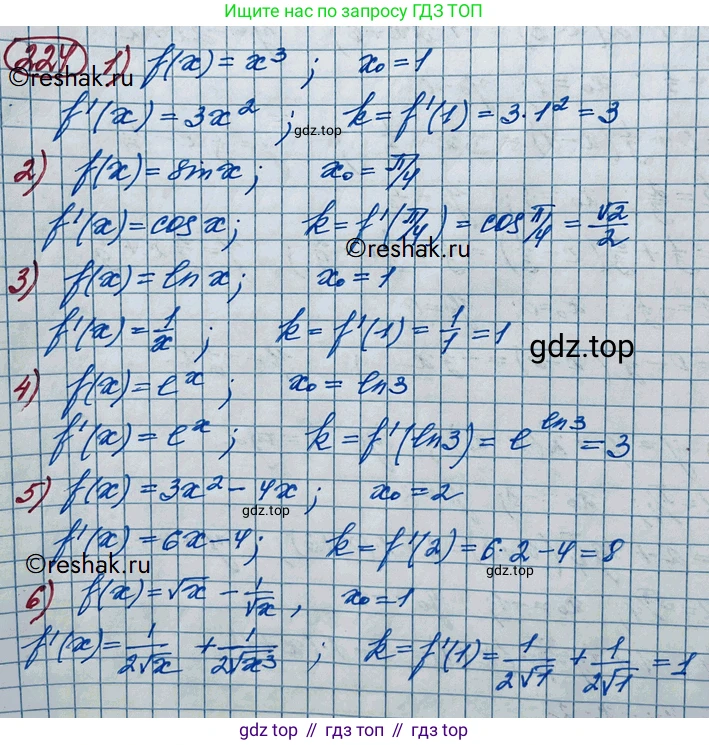 Ищите нас по запросу ГДЗ ТОП
224 1) f(x) = x³ ; x₀ = 1
©reshak.ru
f'(x) = 3x² ; k = f'(1) = 3·1² = 3
gdz.top
2) f(x) = sin x ; x₀ = π/4
f'(x) = cos x ; k = f'(π/4) = cos π/4 = √2/2
©reshak.ru
3) f(x) = ln x ; x₀ = 1
f'(x) = 1/x ; k = f'(1) = 1/1 = 1
gdz.top
4) f(x) = e^x ; x₀ = ln3
f'(x) = e^x ; k = f'(ln3) = e^ln3 = 3
5) f(x) = 3x² - 4x ; x₀ = 2
gdz.top
f'(x) = 6x - 4 ; k = f'(2) = 6·2 - 4 = 8
©reshak.ru
gdz.top
6) f(x) = √x - 1/√x , x₀ = 1
f'(x) = 1/2√x + 1/2√x³ ; k = f'(1) = 1/2√1 + 1/2√1 = 1
gdz.top // гдз.топ // gdz.top